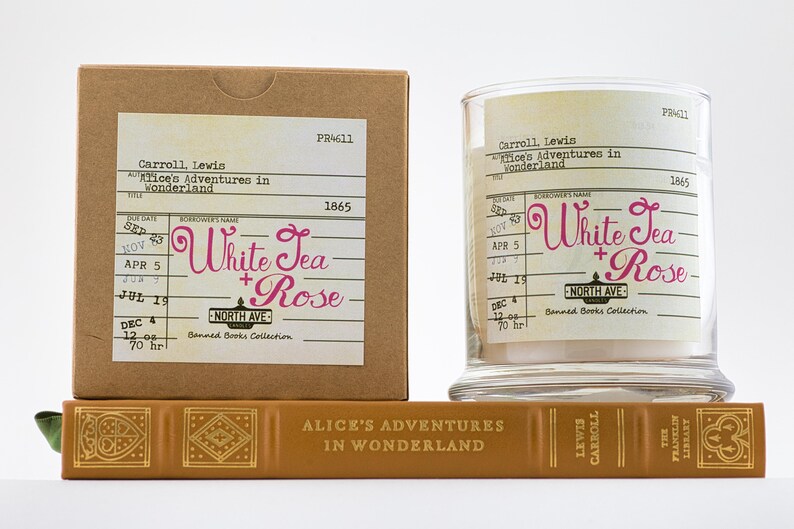 PR4611
Carroll, Lewis
AUTHOR
Alice's Adventures in
Wonderland
TITLE
1865
DUE DATE
BORROWER'S NAME
SEP 23
NOV 8
APR 5
JUN 9
JUL 19
DEC 4
12 oz
70 hr
White Tea
+ Rose
NORTH AVE
CANDLES
Banned Books Collection
PR4611
Carroll, Lewis
AUTHOR
Alice's Adventures in
Wonderland
TITLE
1865
DUE DATE
BORROWER'S NAME
SEP 23
NOV 8
APR 5
JUN 9
JUL 19
DEC 4
12 oz
70 hr
White Tea
+ Rose
NORTH AVE
CANDLES
Banned Books Collection
ALICE'S ADVENTURES
IN WONDERLAND
LEWIS
CARROLL
THE
FRANKLIN
LIBRARY